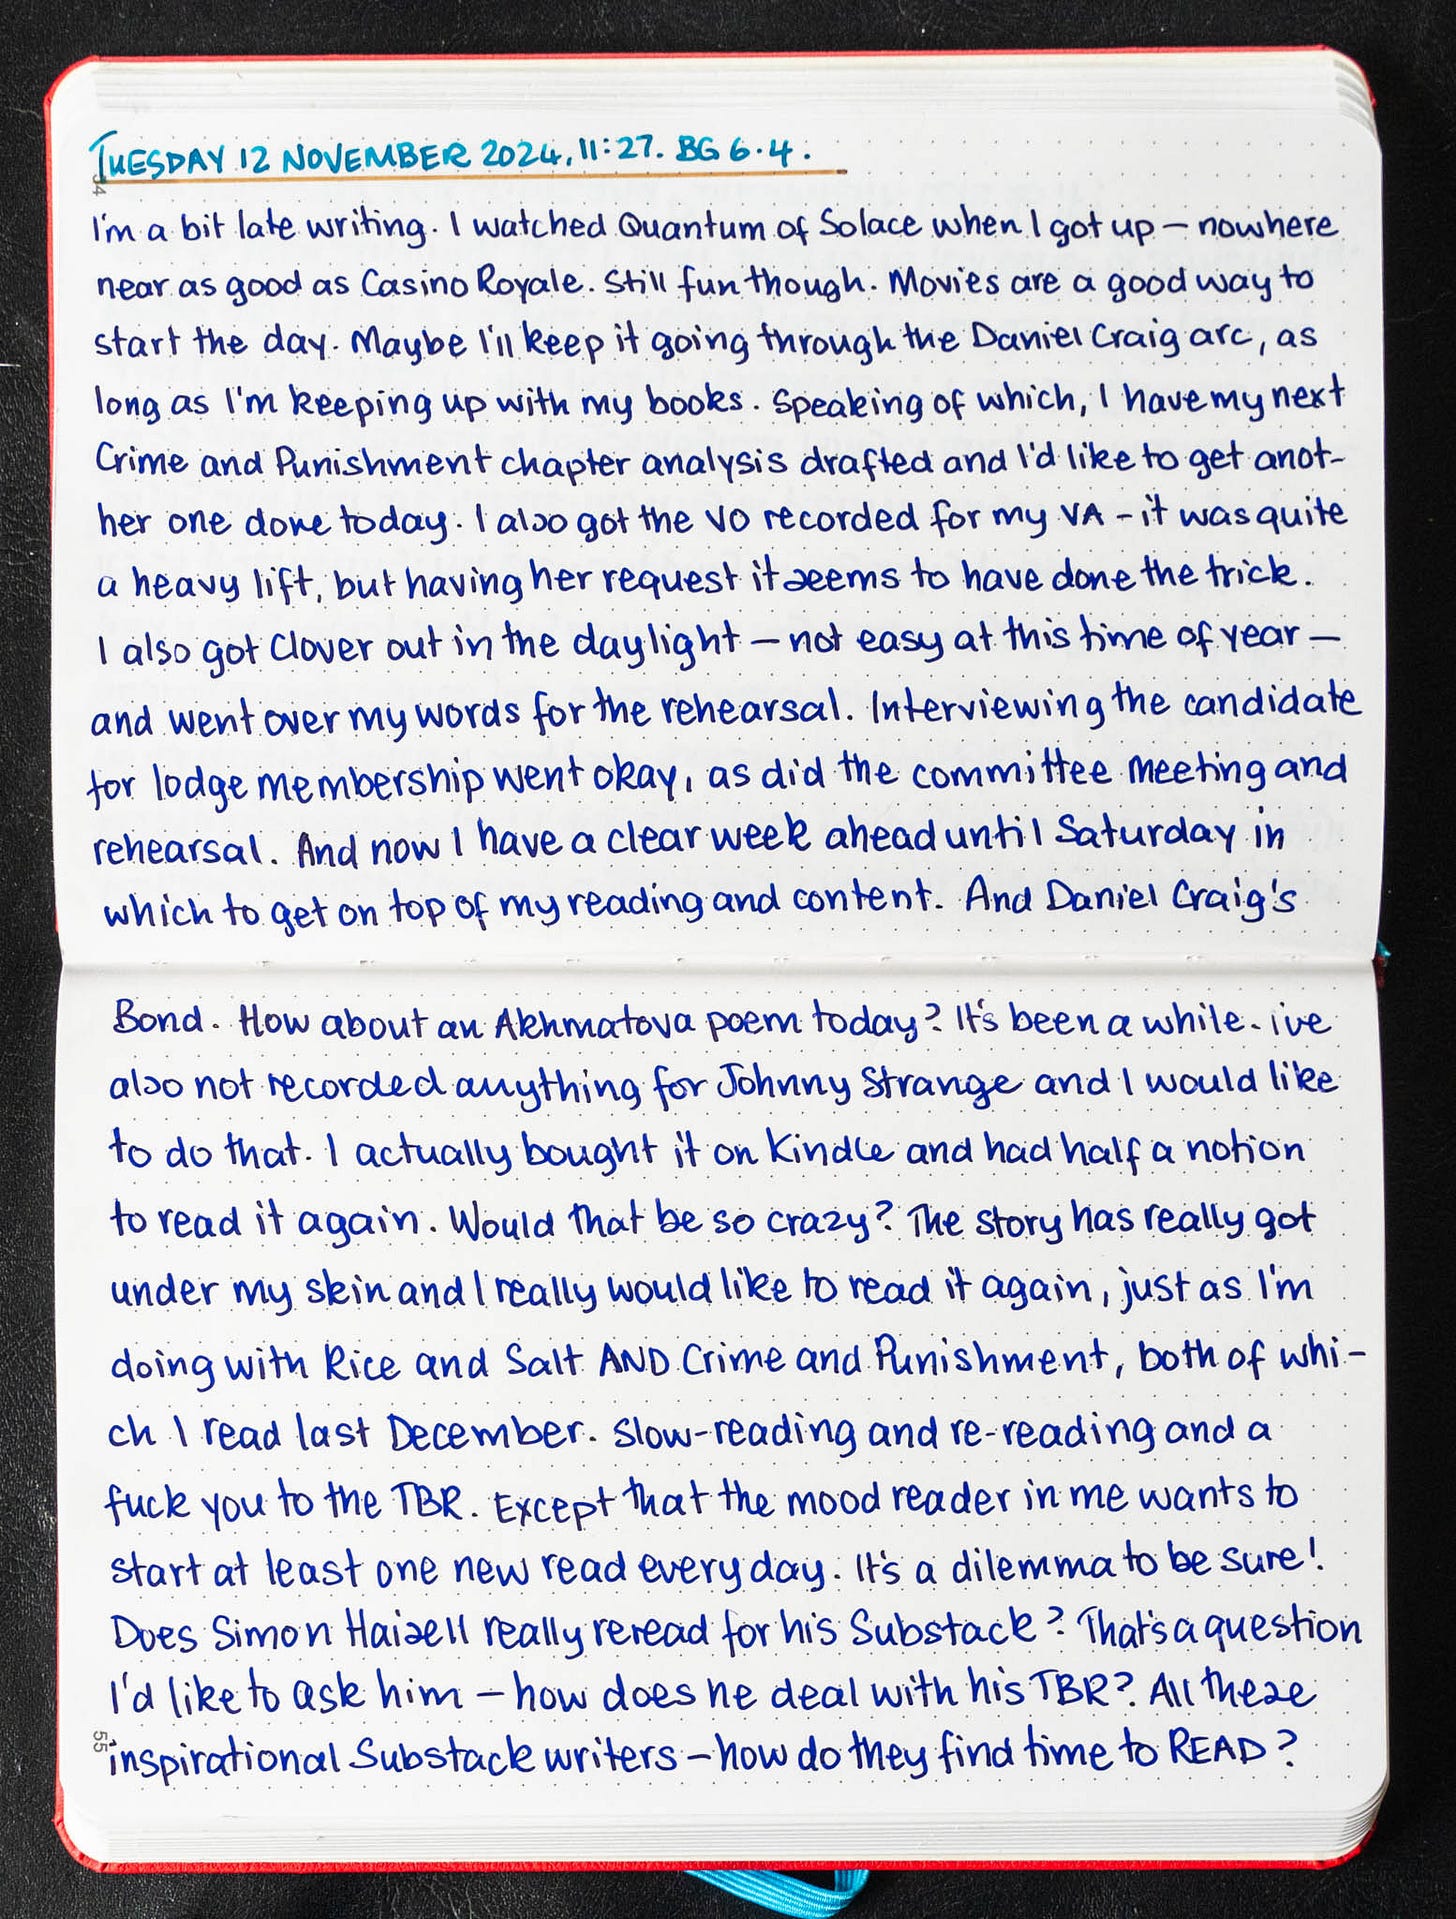 TUESDAY 12 NOVEMBER 2024, 11:27. BG 6.4.
I'm a bit late writing. I watched Quantum of Solace when I got up – nowhere
near as good as Casino Royale. Still fun though. Movies are a good way to
start the day. Maybe I'll keep it going through the Daniel Craig arc, as
long as I'm keeping up with my books. Speaking of which, I have my next
Crime and Punishment chapter analysis drafted and I'd like to get anot-
her one done today. I also got the VO recorded for my VA – it was quite
a heavy lift, but having her request it seems to have done the trick.
I also got Clover out in the daylight – not easy at this time of year –
and went over my words for the rehearsal. Interviewing the candidate
for lodge membership went okay, as did the committee meeting and
rehearsal. And now I have a clear week ahead until Saturday in
which to get on top of my reading and content. And Daniel Craig's
Bond. How about an Akhmatova poem today? It's been a while. i've
also not recorded anything for Johnny Strange and I would like
to do that. I actually bought it on Kindle and had half a notion
to read it again. Would that be so crazy? The story has really got
under my skin and I really would like to read it again, just as I'm
doing with Rice and Salt AND Crime and Punishment, both of whi-
ch I read last December. Slow-reading and re-reading and a
fuck you to the TBR. Except that the mood reader in me wants to
start at least one new read every day. It's a dilemma to be sure!
Does Simon Haisell really reread for his Substack? That's a question
I'd like to ask him – how does he deal with his TBR? All these
55
inspirational Substack writers – how do they find time to READ?